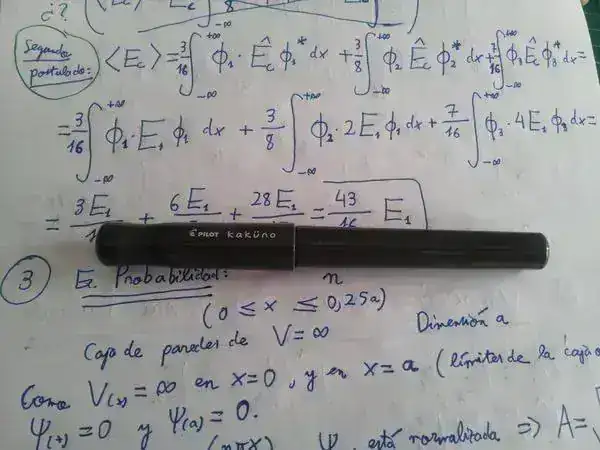 ¿?
Segundo postulado: ⟨E_c⟩ = 3/16 ∫_{-∞}^{+∞} ϕ₁ · Ê_c ϕ₁* dx + 3/8 ∫_{-∞}^{+∞} ϕ₂ Ê_c ϕ₂* dx + 7/16 ∫_{-∞}^{+∞} ϕ₃ Ê_c ϕ₃* dx =
= 3/16 ∫_{-∞}^{+∞} ϕ₁ · E₁ ϕ₁ dx + 3/8 ∫_{-∞}^{+∞} ϕ₂ · 2E₁ ϕ₁ dx + 7/16 ∫_{-∞}^{+∞} ϕ₃ · 4E₁ ϕ₃ dx =
= 3E₁ + 6E₁ + 28E₁ = 43/16 E₁
PILOT kaküno
③ E. Probabilidad: n
(0 ≤ x ≤ 0,25a)
Caja de paredes de V = ∞ Dimensión a
Como V(x) = ∞ en x=0, y en x=a (límites de la caja
Ψ(x) = 0 y Ψ(a) = 0.
(nπx) Ψ está normalizada ⇒ A = √